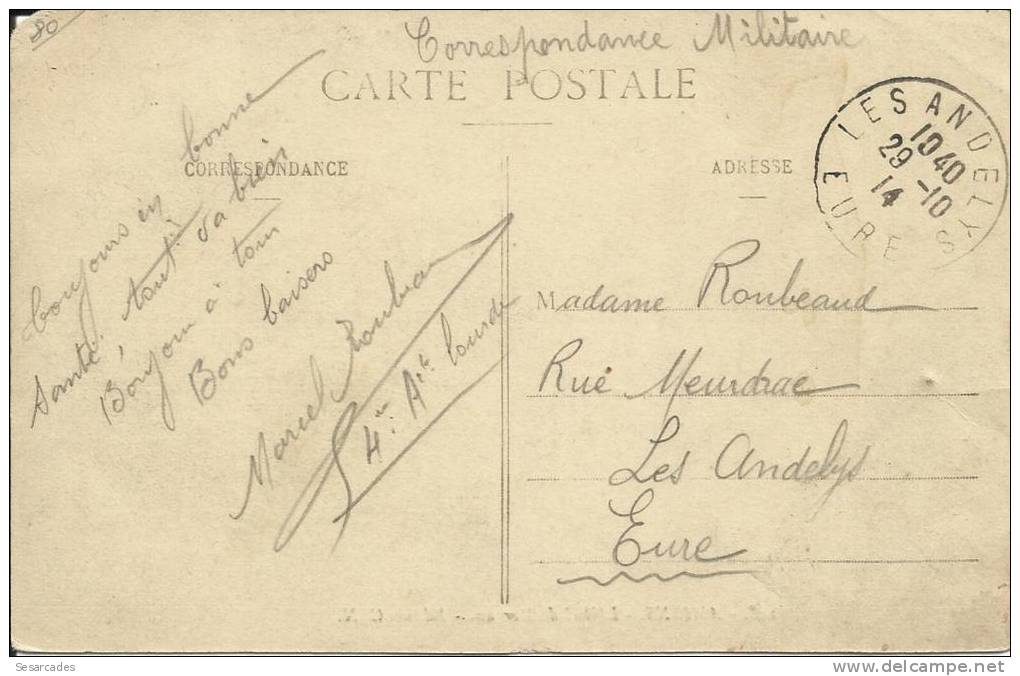 80
Correspondance Militaire
CARTE POSTALE
CORRESPONDANCE
ADRESSE
LES ANDELYS
10 40
29 -10
14
EURE
toujours en bonne
santé, tout va bien
Bonjour à tous
Bons baisers
Marcel Roubeau
4e Art. lourde
Madame Roubeaud
Rue Meurdrac
Les Andelys
Eure
Sesarcades
www.delcampe.net